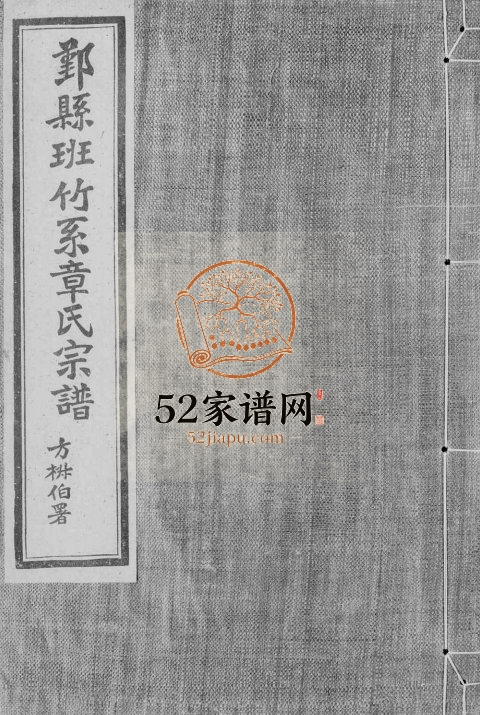 鄞縣班竹系章氏宗譜
方椒伯署
52家谱网
52jiapu.com